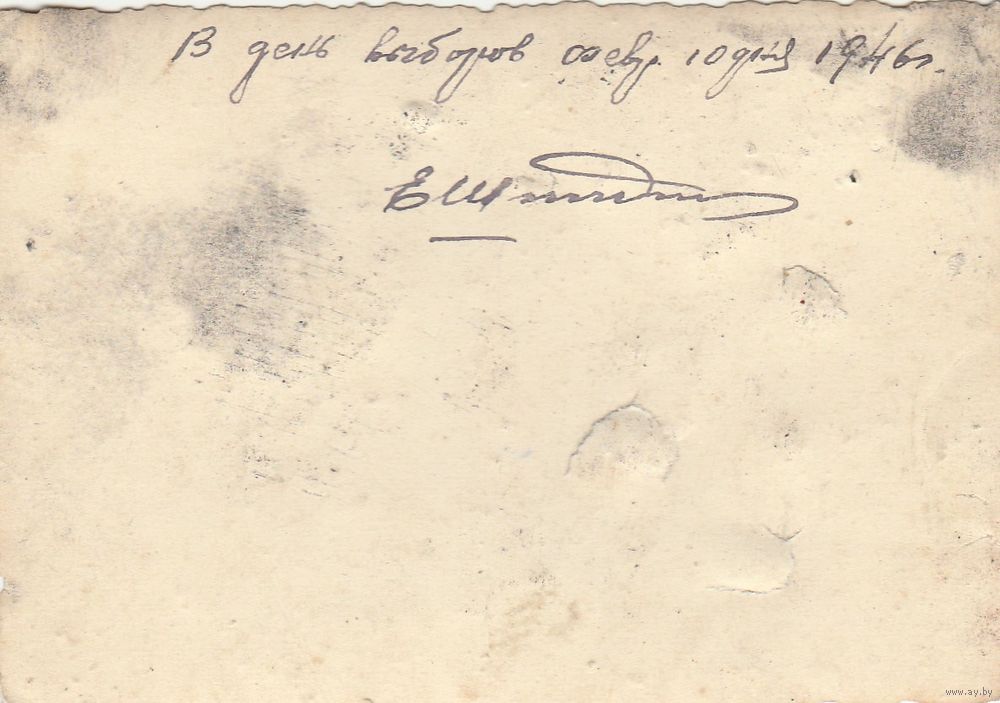 В день выборов февр. 10 дня 1946 г.
www.ay.by